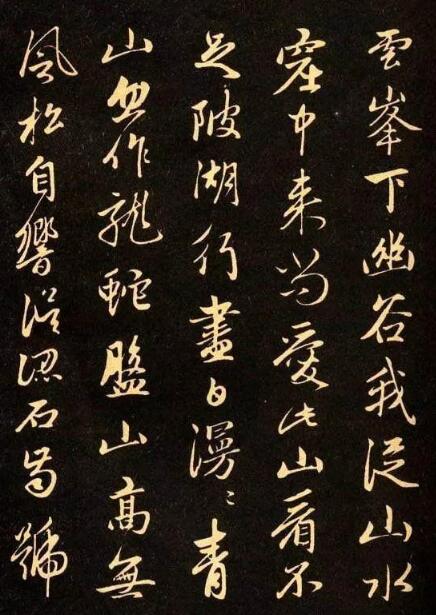 雲峯下幽谷我從山水
窟中来尚愛此山看不
足陂湖行盡白漫〻青
山忽作龍蛇盤山高無
風松自響誤認石齒號